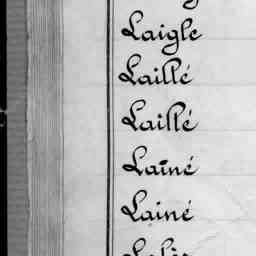 Laigle
Laillé
Laillé
Lainé
Lainé